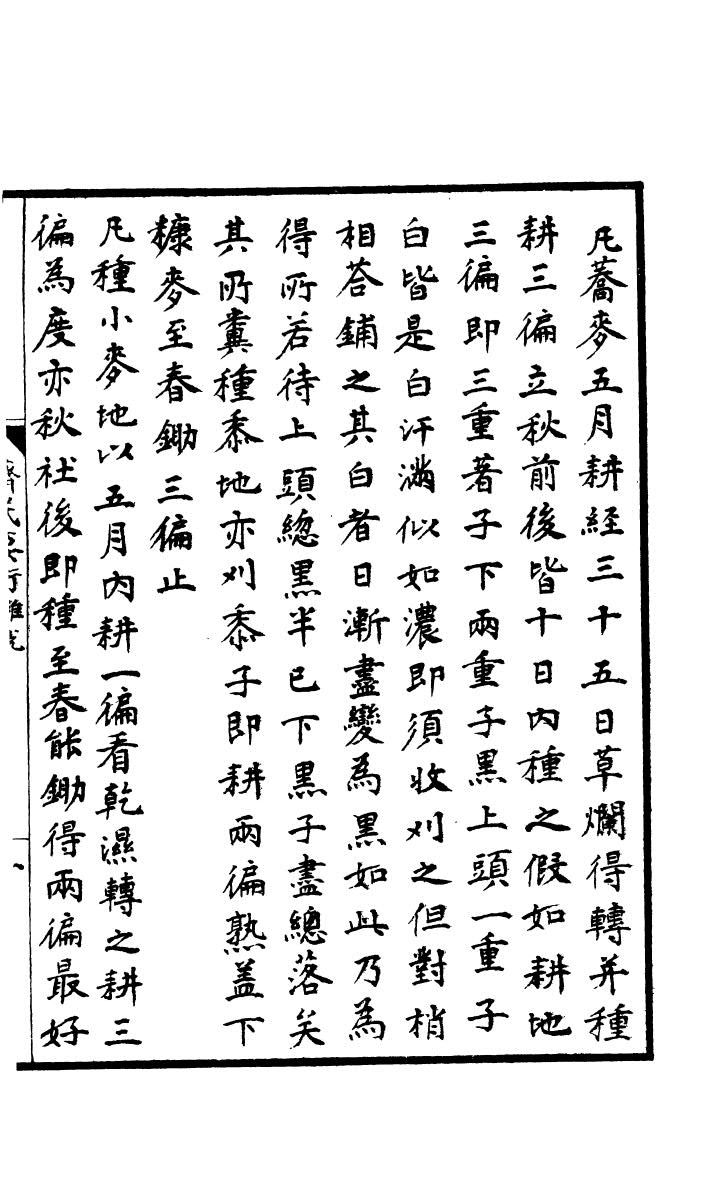 凡蕎麥五月耕經三十五日草爛得轉并種
耕三徧立秋前後皆十日內種之假如耕地
三徧即三重著子下兩重子黑上頭一重子
白皆是白汁滿似如濃即須收刈之但對梢
相荅鋪之其白者日漸盡變為黑如此乃為
得所若待上頭總黑半已下黑子盡總落矣
其所糞種黍地亦刈黍子即耕兩徧熟蓋下
糠麥至春鋤三徧止
凡種小麥地以五月內耕一徧看乾濕轉之耕三
徧為度亦秋社後即種至春能鋤得兩徧最好